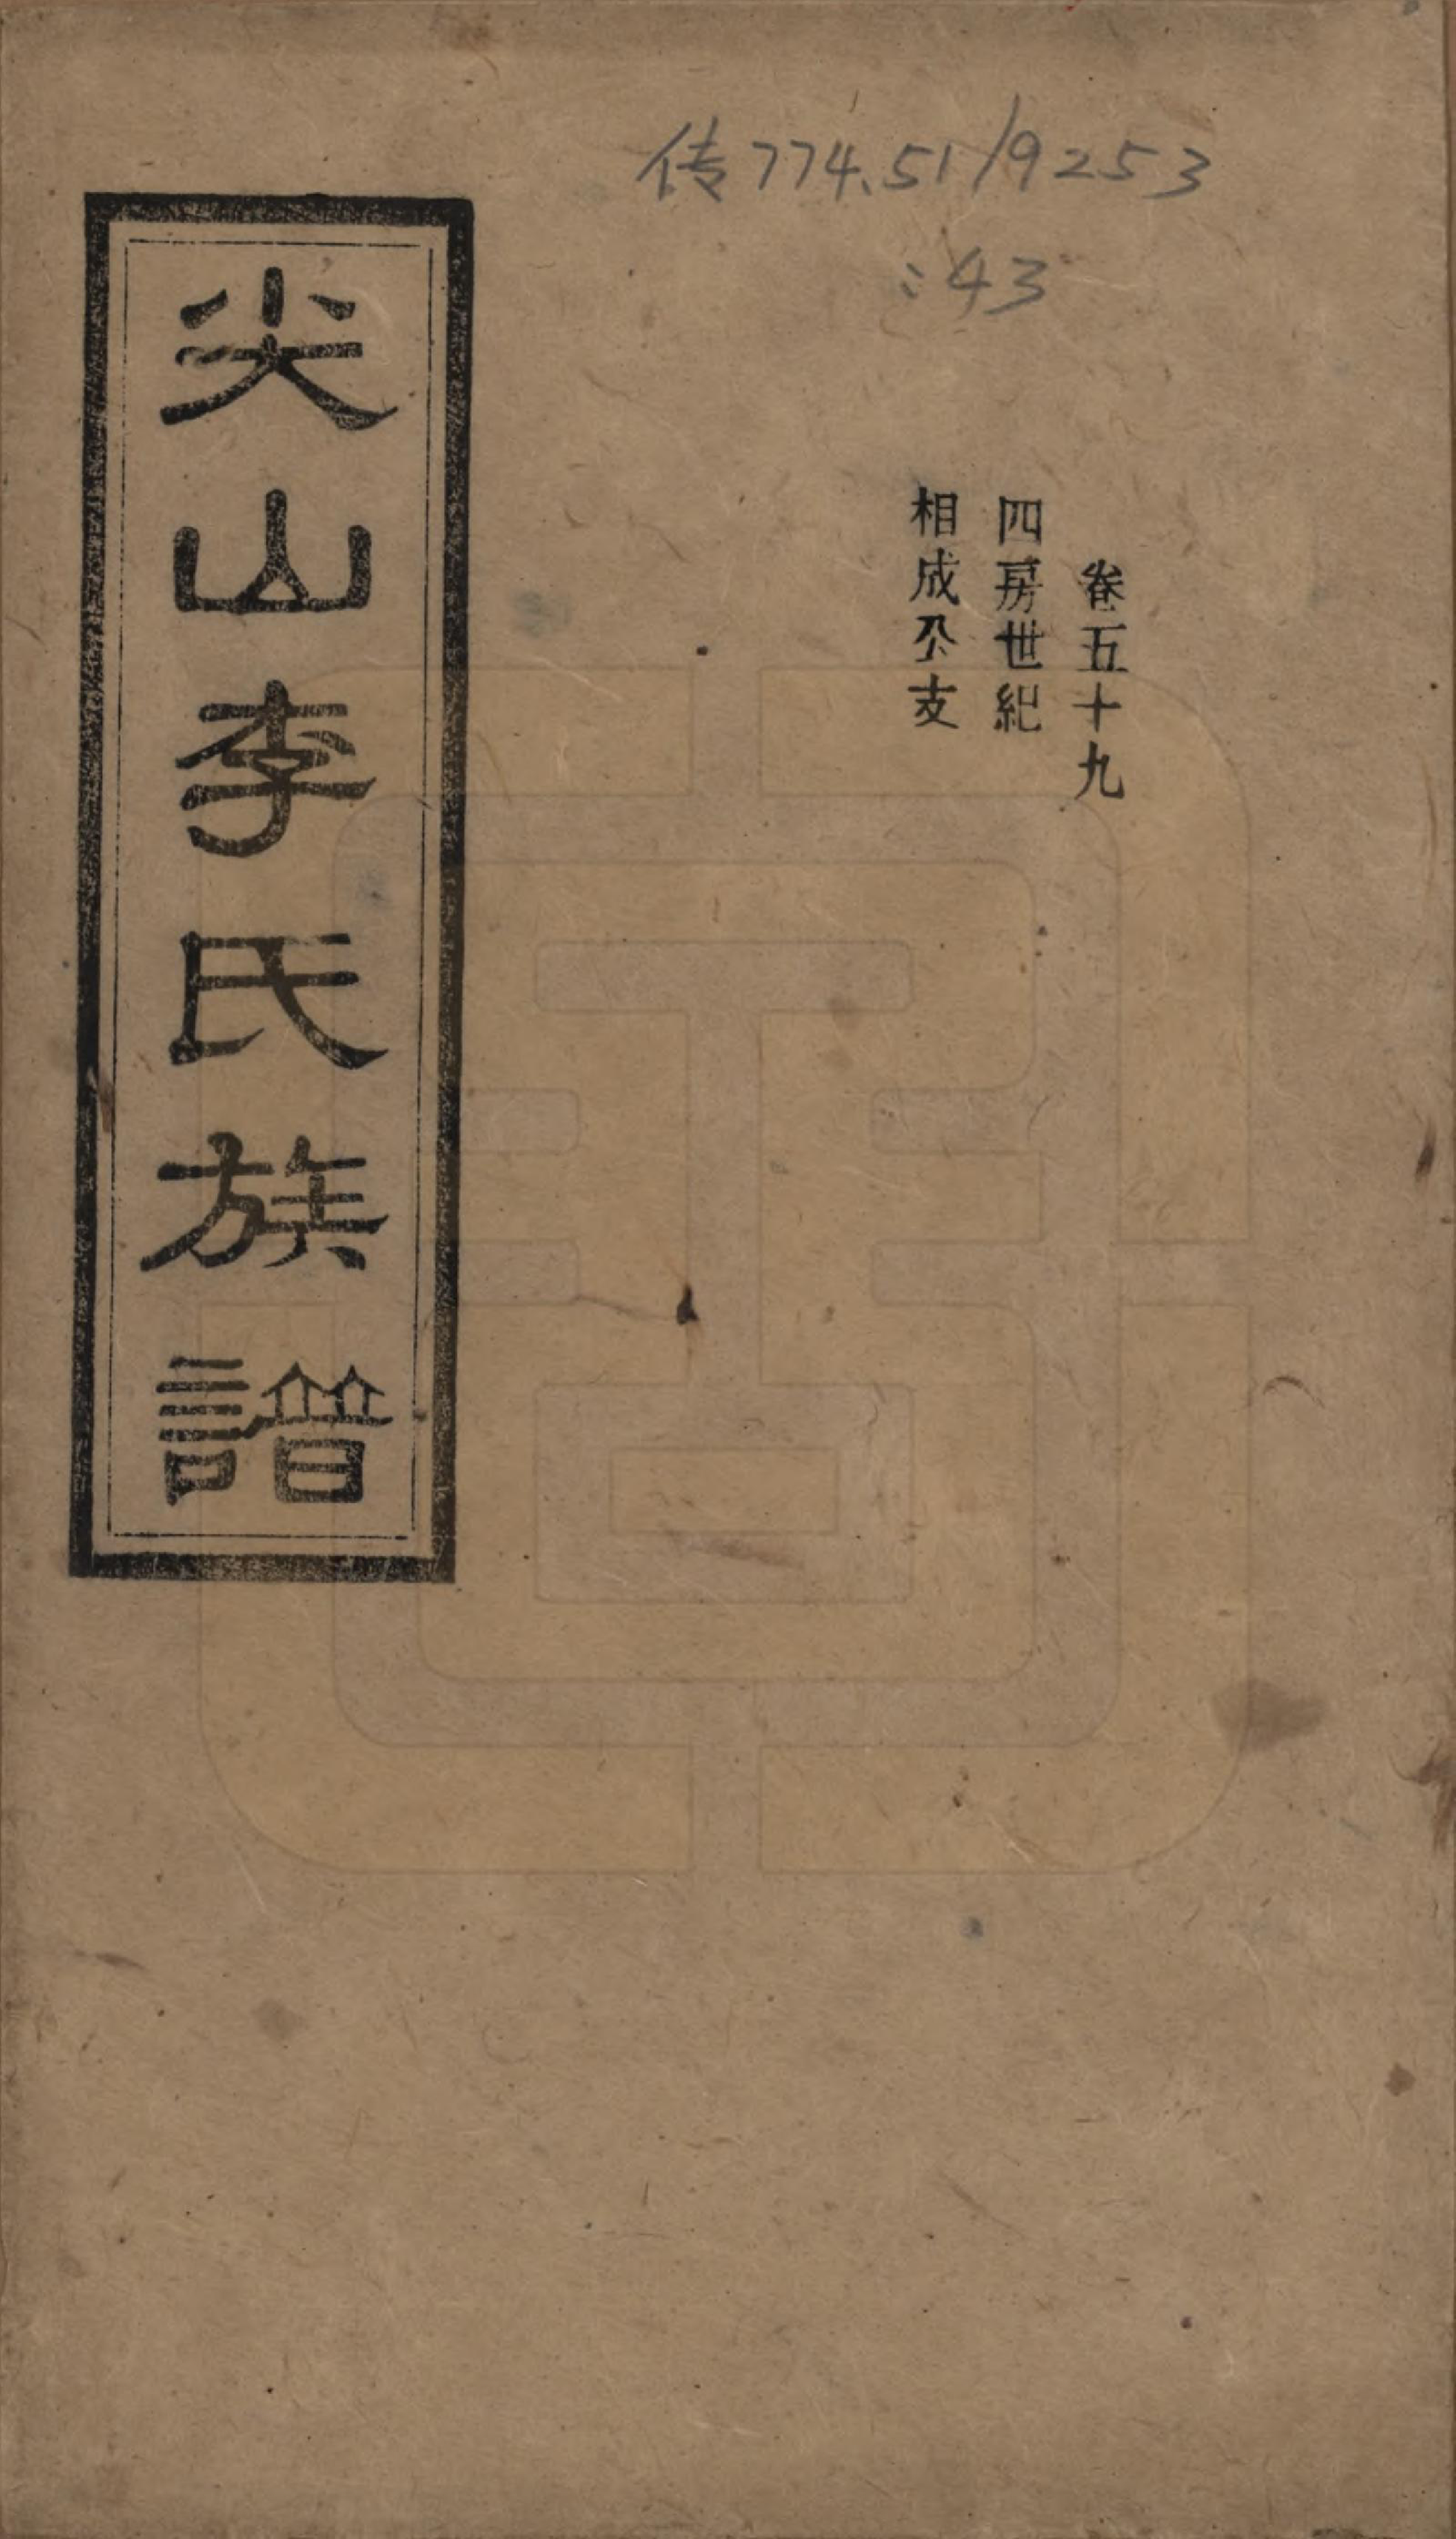 传774.51/9253
:43
卷五十九
四房世紀
相成公支
尖山李氏族譜